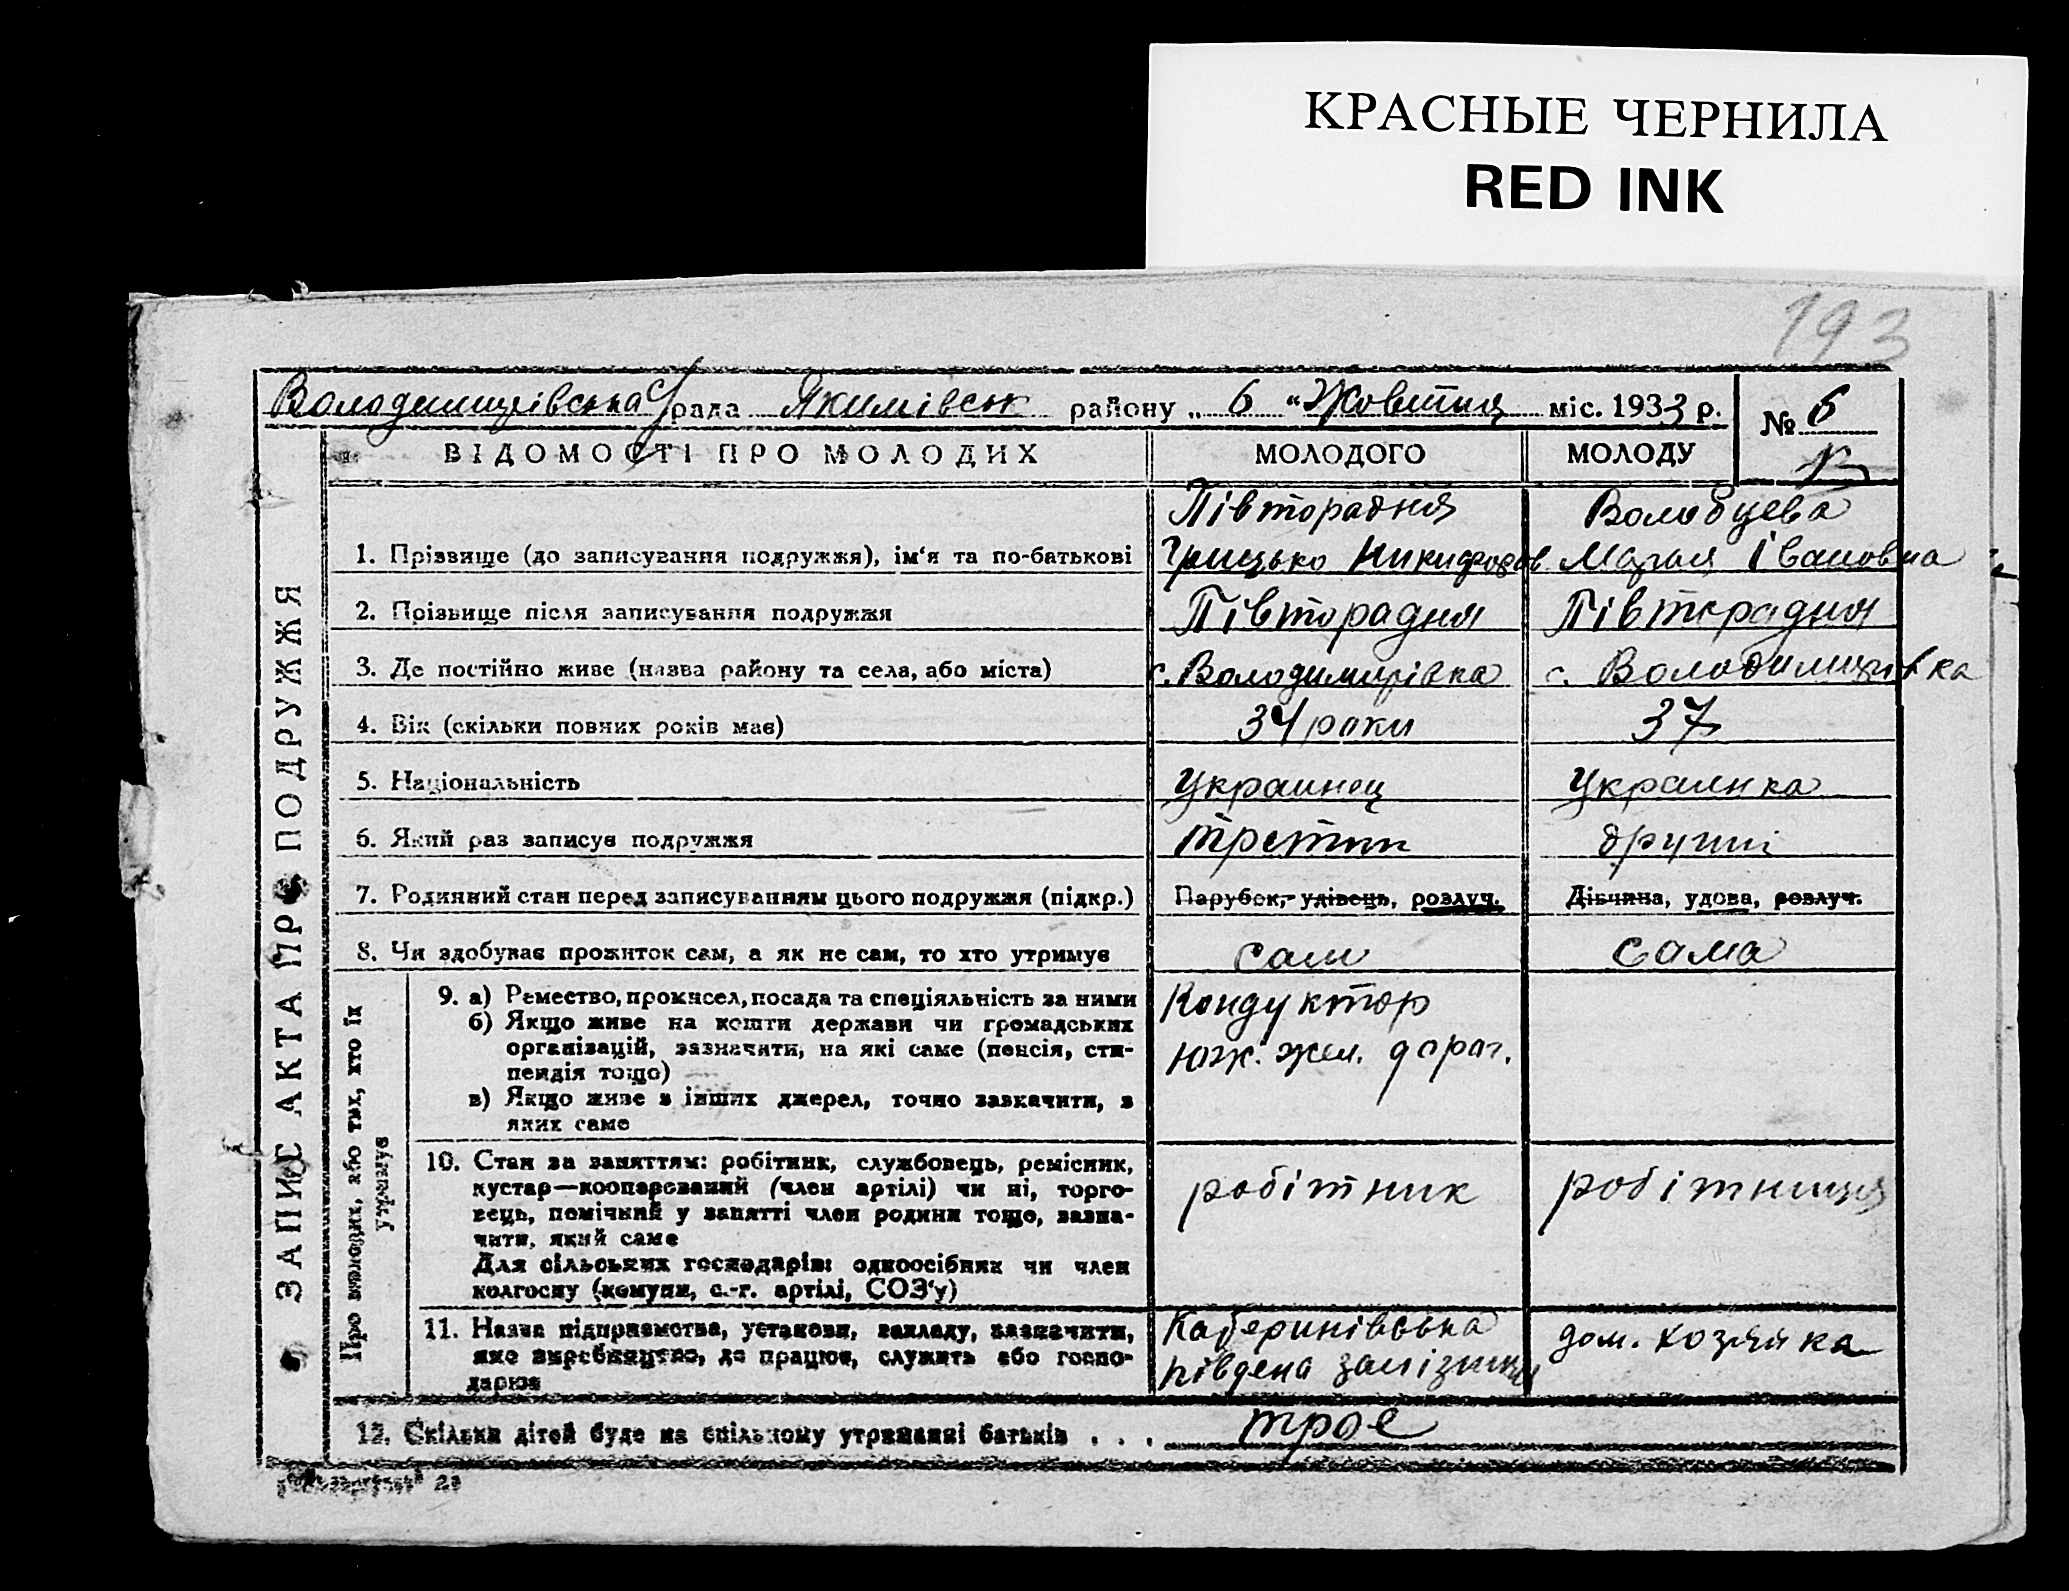 КРАСНЫЕ ЧЕРНИЛА
RED INK
193
Володимирівська с/рада Якимівськ району „ 6 “ Жовтня міс. 1933 р.
№ 6
ВІДОМОСТІ ПРО МОЛОДИХ
МОЛОДОГО
МОЛОДУ
ЗАПИС АКТА ПРО ПОДРУЖЖЯ
Півторадня
Волобуева
1. Прізвище (до записування подружжя), ім‘я та по-батькові
Грицько Никифоров
Мария Івановна
2. Прізвище після записування подружжя
Півторадня
Півторадня
3. Де постійно живе (назва району та села, або міста)
с. Володимирівка
с. Володимирівка
4. Вік (скільки повних років має)
34 роки
37
5. Національність
Украинец
Украинка
6. Який раз записує подружжя
третий
другий
7. Родинний стан перед записуванням цього подружжя (підкр.)
Парубок, удівець, розлуч.
Дівчина, удова, розлуч.
8. Чи здобуває прожиток сам, а як не сам, то хто утримує
сам
сама
Про молодих, або тих, хто їх
утримує
9. а) Ремество, промисел, посада та спеціяльність за ними
б) Якщо живе на кошти держави чи громадських
організацій, зазначити, на які саме (пенсія, сти-
пендія тощо)
в) Якщо живе з інших джерел, точно зазначити, з
яких саме
Кондуктор
Юж. жел. дорог.
10. Стан за заняттям: робітник, службовець, ремісник,
кустар—кооперований (член артілі) чи ні, торго-
вець, помічний у занятті член родини тощо, зазна-
чити, який саме
Для сільських господарів: одноосібник чи член
колгоспу (комуни, с.-г. артілі, СОЗ‘у)
робітник
робітниця
11. Назва підприємства, установи, закладу, зазначити,
яке виробництво, де працює, служить або госпо-
дарює
південа залізниця
дом. хозяйка
12. Скільки дітей буде на спільному утриманні батьків . . .
трое